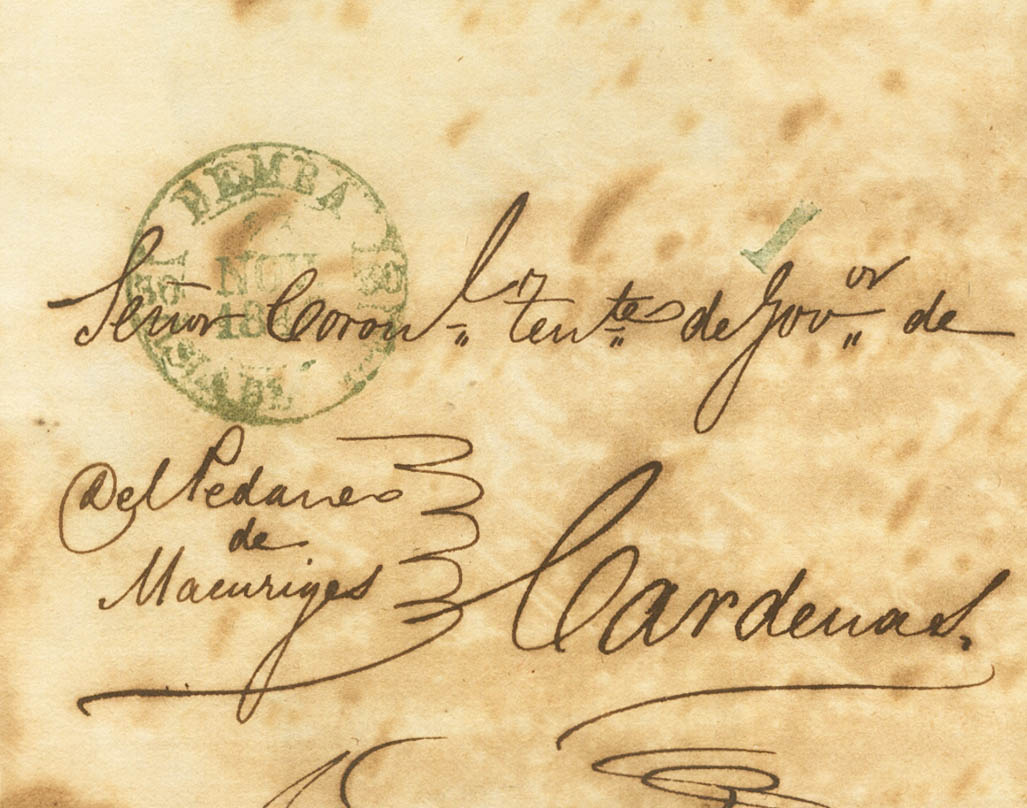 BEMBA
NOV
Señor Coron.l tente.s de Gov.or de
Del Pedaneo
de
Macuriges
Cardenas.